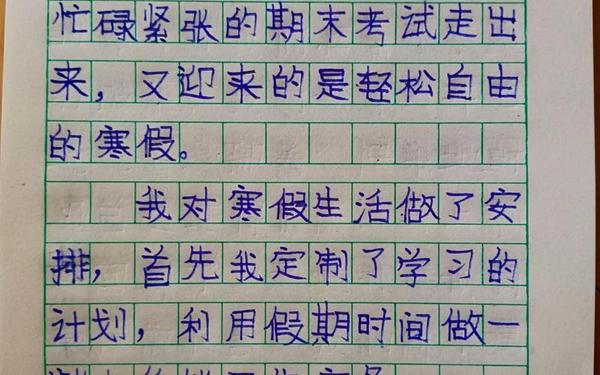 忙碌紧张的期末考试走出
来，又迎来的是轻松自由
的寒假。
我对寒假生活做了安
排，首先我定制了学习的
计划，利用假期时间做一